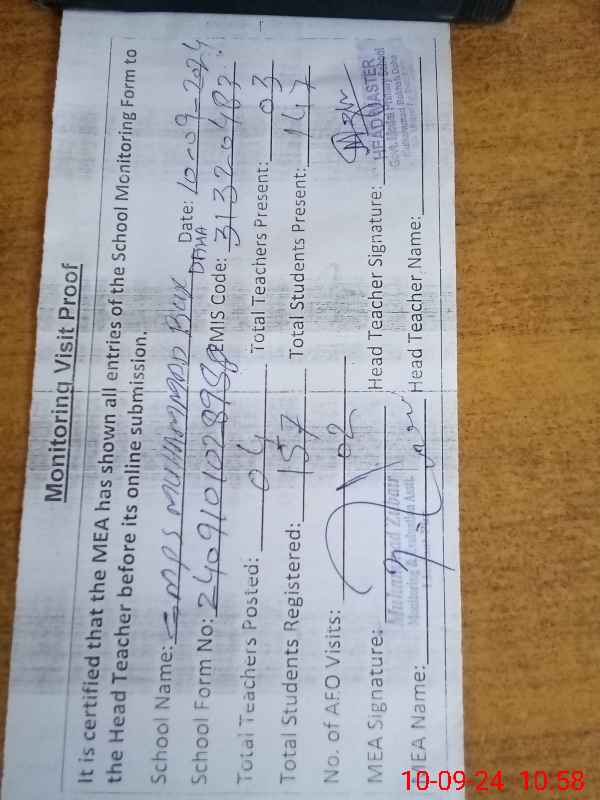 Monitoring Visit Proof
It is certified that the MEA has shown all entries of the School Monitoring Form to
the Head Teacher before its online submission.
School Name: GMPS MUHAMMAD BUX DAHA Date: 10-09-2024
School Form No: EMIS Code: 31320483
Total Teachers Posted: 04 Total Teachers Present: 03
Total Students Registered: 157 Total Students Present: 147
No. of AEO Visits: 02
MEA Signature: Head Teacher Signature:
HEAD MASTER
Muhammad Zubair
Monitoring & Evaluation Asstt.
MEA Name: Head Teacher Name:
10-09-24 10:58